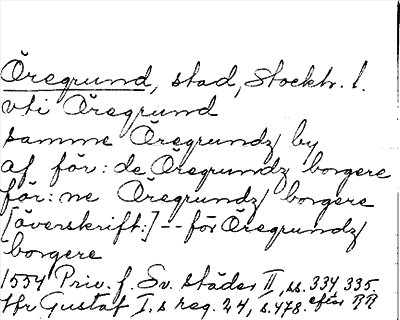 Öregrund, stad, Stockh. l.
vti Öregrund
samme Öregrundz by
af för:de Öregrundz borgere
för:ne Öregrundz borgere
[överskrift:] -- för Öregrundz
borgere
1554 Priv. f. Sv. städer II, ss. 334, 335.
Gustaf I.s reg. 24, s. 478. efter RR